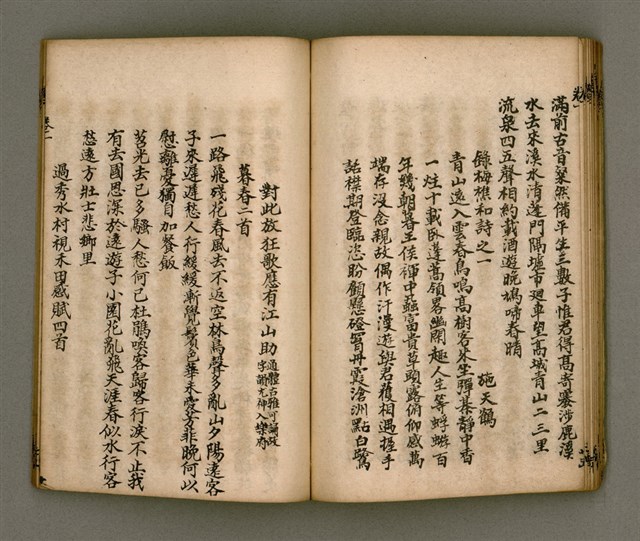 滿前古音粲然備平生三數子惟君得高奇褰涉鹿溪
水去來溪水清蓬門隔墟市廻車望高城青山二三里
流泉四五聲相約載酒遊晚鳩啼春晴
錄梅樵和詩之一
施天鶴
青山遠入雲春鳥鳴高樹客來坐彈棊靜中香
一炷十載臥蓬蒿領畧幽閑趣人生等蜉蝣百
年幾朝暮王侯褌中蝨富貴草頭露俯仰感萬
端存沒念親故偶作汗漫遊與君獲相遇握手
話襟期登臨恣盼顧懸磴宿丹霞滄洲點白鷺
對此放狂歌應有江山助
通體古雅可誦改字韻尤神入樂府
暮春二首
一路飛殘花春風去不返空林鳥聲多亂山夕陽遠客
子來遲遲愁人行緩緩漸覺鬢色華未覺非晚何以
慰離憂獨自加餐飯
芳光去已多騷人愁何已杜鵑喚客歸客行淚不止我
有去國思深於遠遊子小園花亂飛天涯春似水行客
愁遠方壯士悲鄉里
過秀水村視禾田感賦四首
卷一
卷一